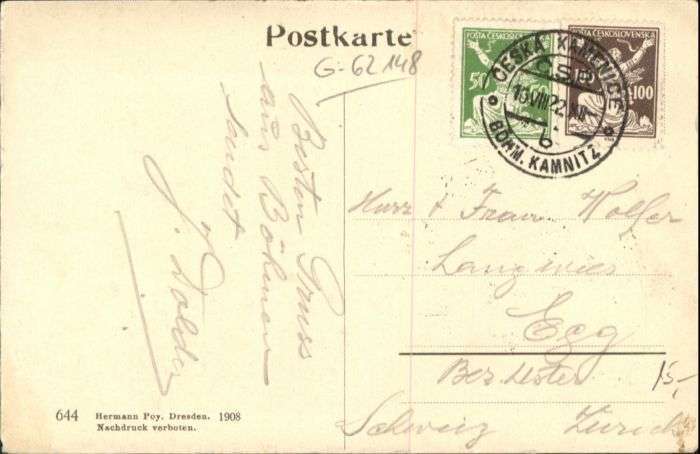 Postkarte
G-62148
POŠTA ČESKOSLOVENSKÁ
50 50
POŠTA ČESKOSLOVENSKÁ
100
ČESKÁ KAMENICE
ČSP
13.VIII.22.XII
b
BÖHM. KAMNITZ
Besten Gruss
aus Böhmen
sendet
J. Dolder
Herr & Frau Wolfer
Langwies
Egg
Bez Uster
15,-
Schweiz Zürich
644 Hermann Poy, Dresden. 1908
Nachdruck verboten.